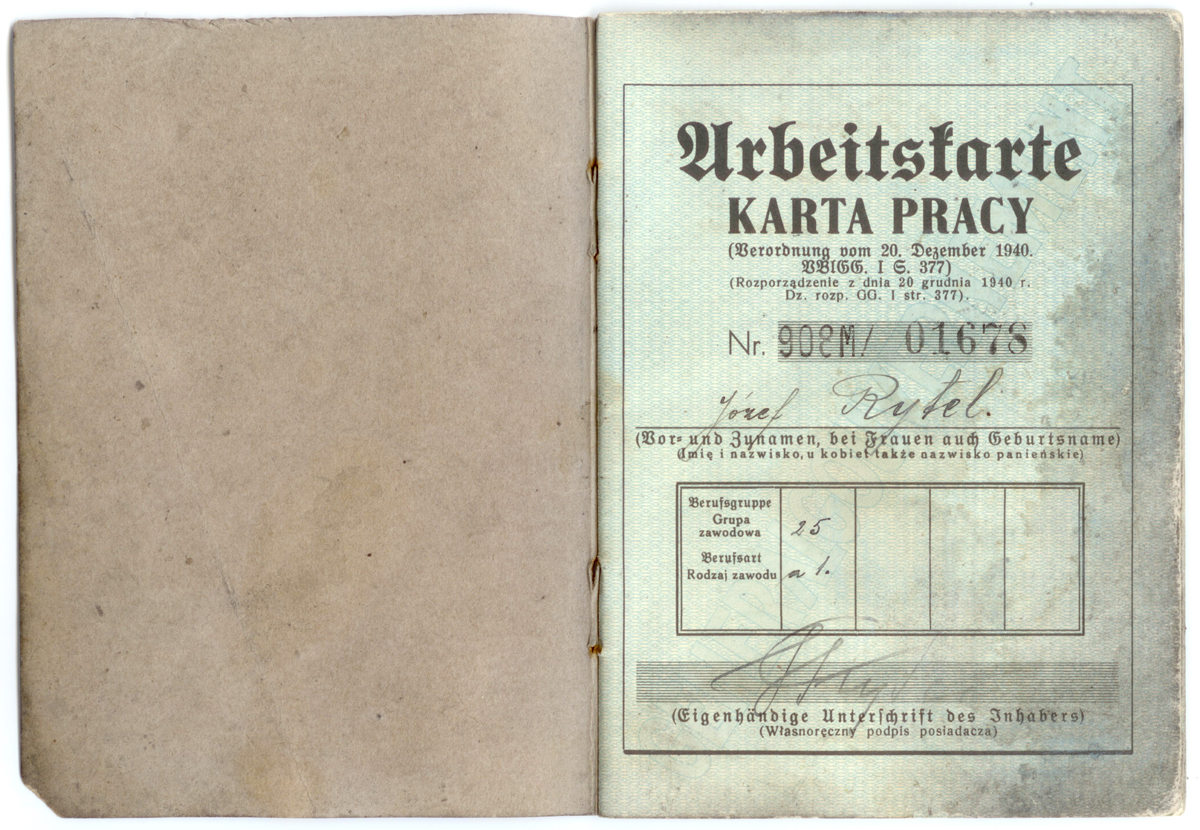 Arbeitskarte
KARTA PRACY
(Verordnung vom 20. Dezember 1940.
VBlGG. I S. 377)
(Rozporządzenie z dnia 20 grudnia 1940 r.
Dz. rozp. GG. I str. 377).
Nr. 908M/ 01678
Józef Rytel.
(Vor- und Zunamen, bei Frauen auch Geburtsname)
(Imię i nazwisko, u kobiet także nazwisko panieńskie)
Berufsgruppe
Grupa
zawodowa 25
Berufsart
Rodzaj zawodu a 1.
(Eigenhändige Unterschrift des Inhabers)
(Własnoręczny podpis posiadacza)